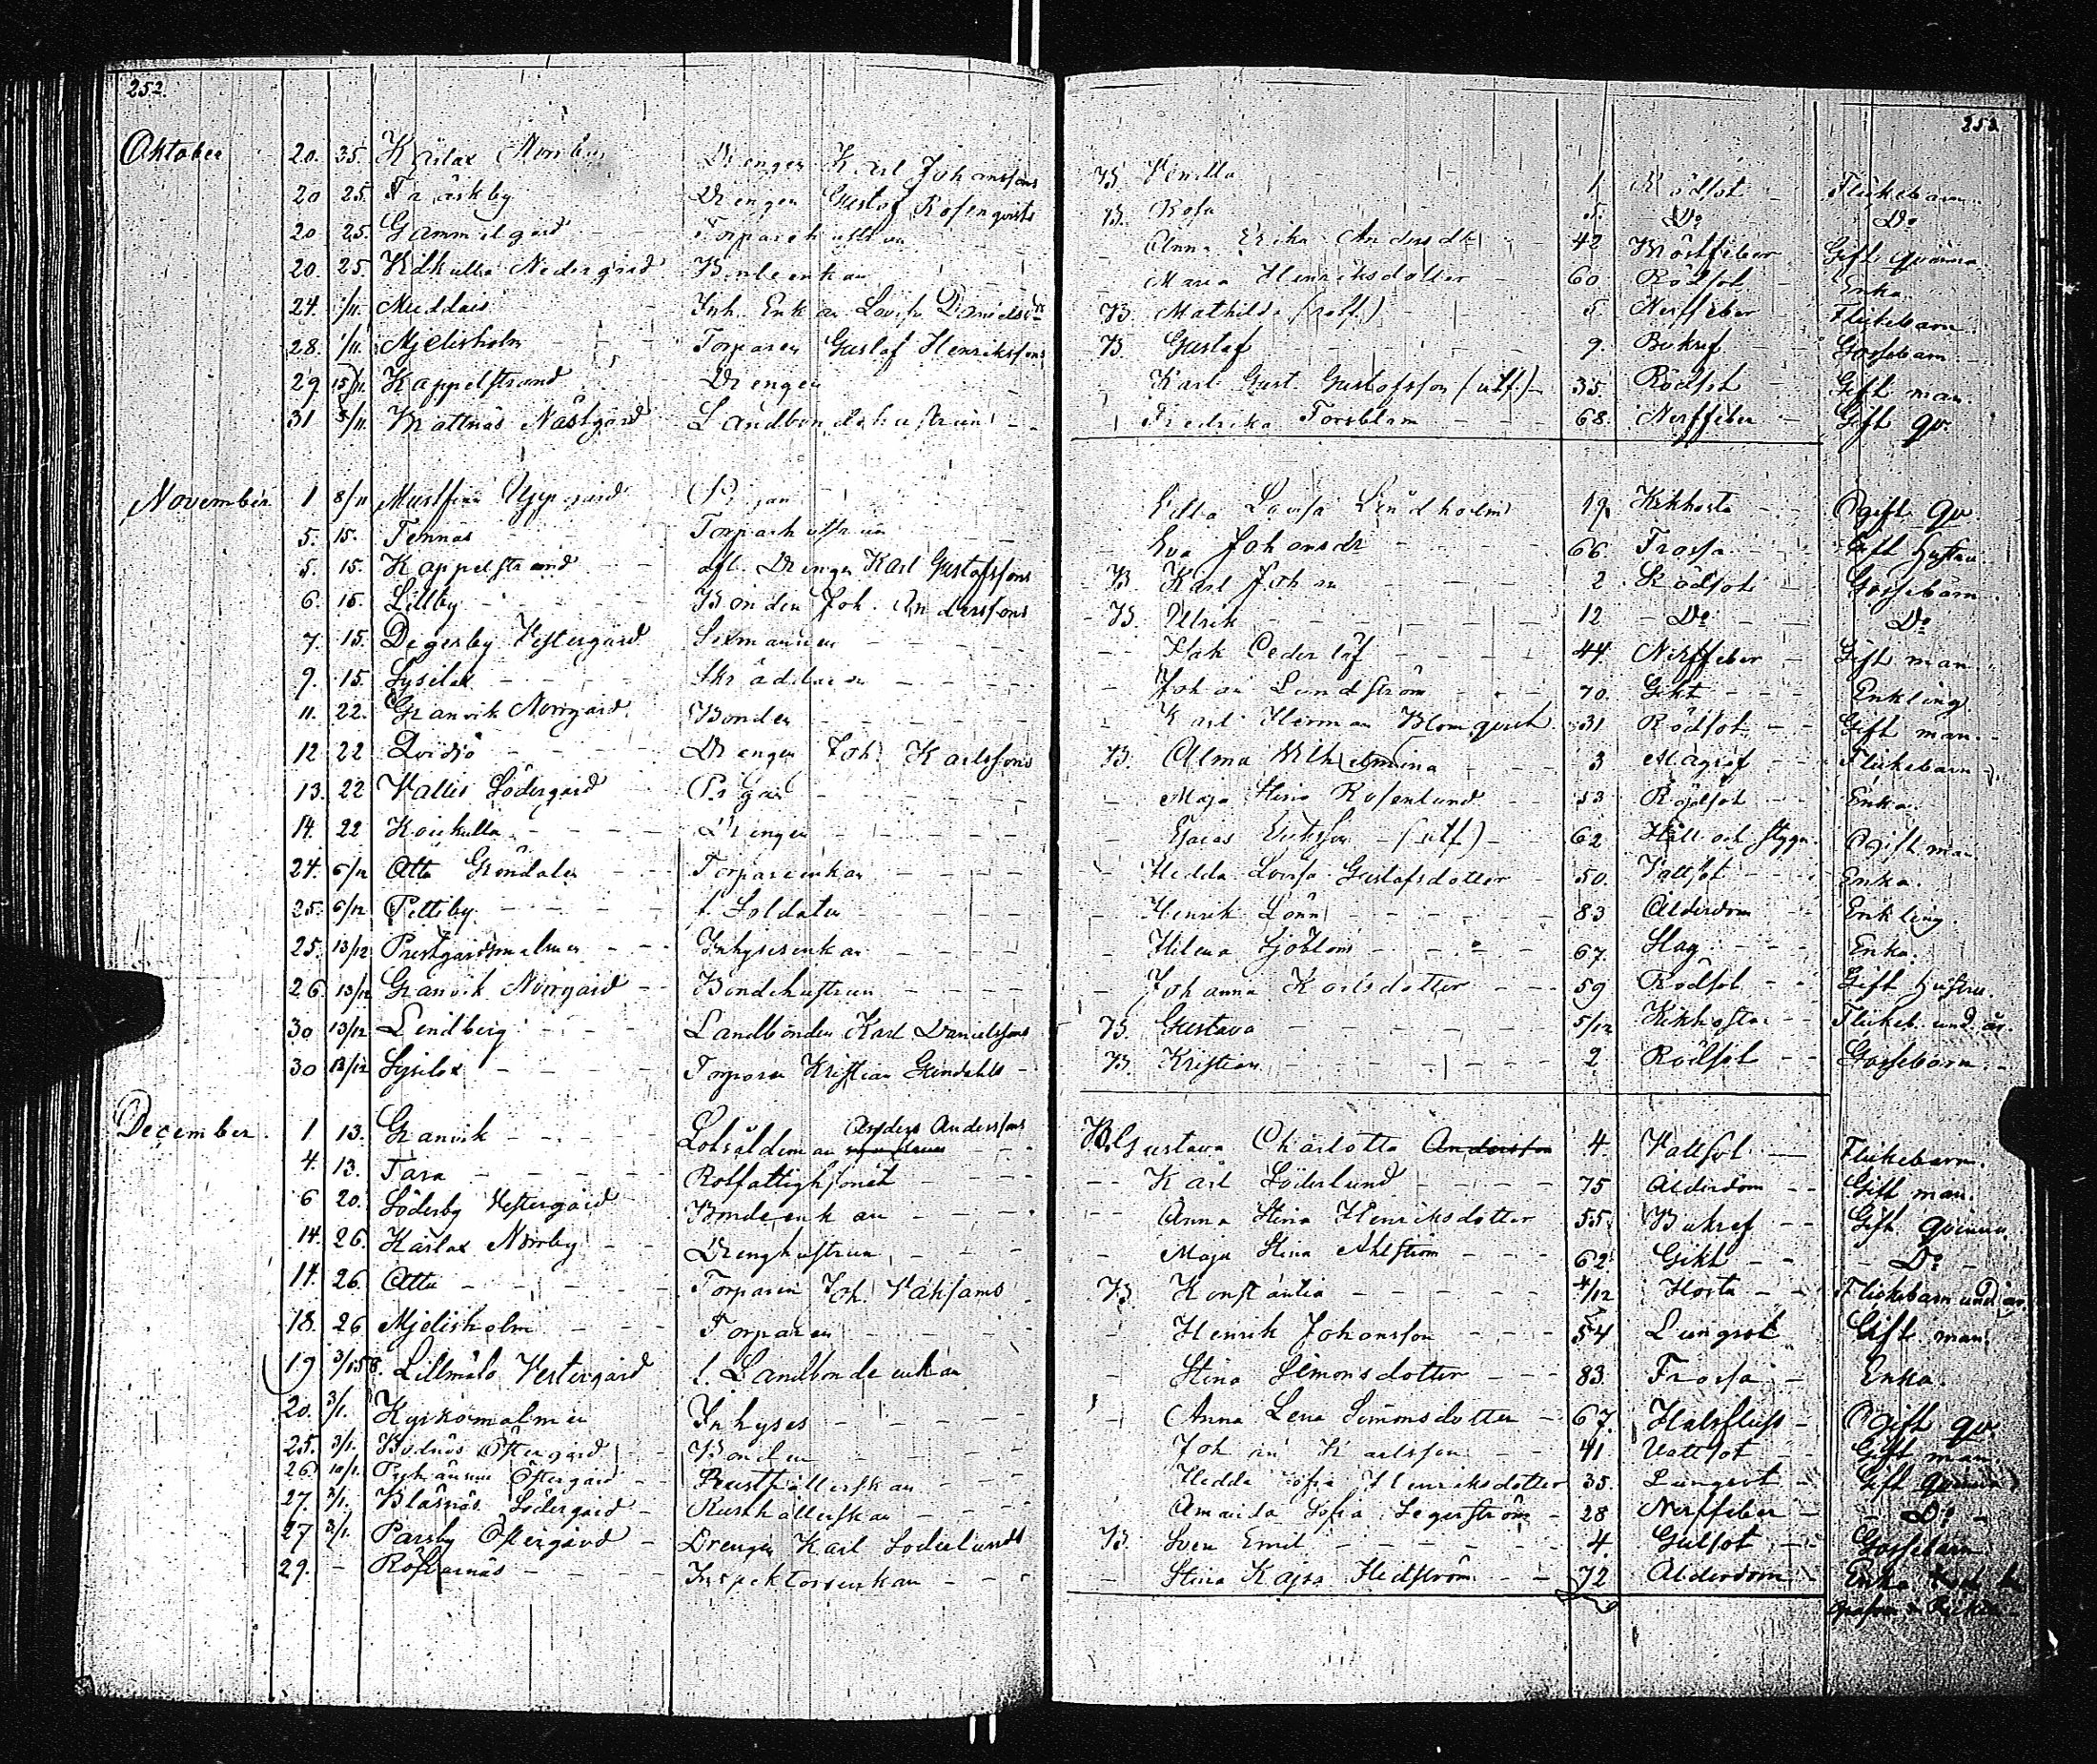 252.
253
Oktober 20. 35. Kärlax Norrby Drengen Karl Johanssons B. Vendla 1 Rödsot Flickebarn.
20 25. Träskby Drengen Gustaf Rosenqvists B. Rosa 5. Do Do
20 25. Gammelgård Torparehustrun Anna Erika Andersdr 42 Bröstfeber Gift qvinna
20. 25. Nedergård Bondeenkan Maria Henriksdotter 60 Rödsot Enka.
24. 1/11. Muddais Inh. Enkan Lovisa Danielsdr B. Mathilda 5 Nerffeber Flickebarn.
28. 1/11. Mjelisholm Torparen Gustaf Henrikssons B. Gustaf 9. Bukref Gossebarn.
29. 15/11. Kappelstrand Drengen Karl Gust. Gustafsson (utf.) 35. Rödsot Gift man.
31 5/11. Brattnäs Nästgård Landbondehustrun Fredrika Forsblom 68. Nerffeber Gift qv.
November 1 8/11 Mustfinn Uppgård Pigan Edla Lovisa Lindholm 19. Kikhosta Ogift qv.
5. 15. Tennäs Torparhustrun Eva Johansdr 66. Frossa Gift hustru.
5. 15. Kappelstrand afl. Drengen Karl Gustafssons B. Karl Johan 2 Rödsot Gossebarn.
6. 15. Lillby Bonden Joh. Anderssons B. Ulrik 12 Do Do
7. 15. Degerby Vestergård Sexmannen Isak Cederlöf 44. Nerffeber Gift man.
9. 15. Sysilax Skräddaren Johan Lundström 70. Gikt Enkling
11. 22. Granvik Norrgård Bonden Karl Herman Blomqvist 31 Rödsot Gift man.
12 22 Qvidjö Drengen Joh. Karlssons B. Alma Vilhelmina 3 Magref Flickebarn.
13. 22 Vallis Södergård Pigan Maja Stina Rosenlund 53 Rödsot Enka.
14. 22 Koukulla Drengen Esaias (utf) 62 Håll och styggn. Ogift man.
24. 6/12 Attu Gröndalen Torpareenkan Hedda Lovisa Gustafsdotter 50. Vattsot Enka.
25. 6/12 Pettiby f. Soldaten Henrik Lönn 83 Ålderdom Enkling.
25. 13/12 Prestgårdsmalmen Inhysesenkan Helena Sjöblom 67. Slag Enka.
26. 13/12 Granvik Norrgård Bondehustrun Johanna Karlsdotter 59 Rödsot Gift hustru.
30 13/12 Lindberg Landbonden Karl Danielssons B. Gustava 5/12 Kikhosta Flickeb. und. år.
30 13/12 Sysilax Torparen Kristian Grendahls B. Kristian 2 Rödsot Gossebarn.
December 1 13. Granvik Lotsåldermann Anders Anderssons B. Gustava Charlotta Andersson 4. Vattsot Flickebarn.
4. 13. Tara Rotfattighjonet Karl Söderlund 75 Ålderdom Gift man.
6 20. Söderby Vestergård Bondeenkan Anna Stina Henriksdotter 55 Bukref Gift qvinna.
14. 26. Kärlax Norrby Drenghustrun Maja Stina Ahlström 62 Gikt Do
14. 26. Attu Torparen Joh. B. Konstantia 4/12 Hosta Flickebarn und. år.
18. 26 Mjelisholm Torparen Henrik Johansson 54 Lungsot Gift man.
19 3/1 58. Lillmälö Vestergård f. Landbondeenkan Stina Simonsdotter 83. Frossa Enka.
20. 3/1. Kyrkomalmen Inhyses Anna Lena Simonsdotter 67. Halsfluss Ogift qv.
25. 3/1. Bodnäs Östergård Bonden Johan Karlsson 41 Vattsot Gift man.
26. 10/1. Östergård Rusthållerskan Hedda Sofia Henriksdotter 35. Lungsot Gift qvinna
27. 3/1. Bläsnäs Södergård Rusthållerskan Amanda Sofia Segerström 28 Nerffeber Do
27 3/1. Parsby Östergård Drengen Karl Söderlunds B. Sven Emil 4. Gulsot Gossebarn
29. Rösbarnäs Inspektorsenkan Stina Kajsa Hedström 72 Ålderdom Enka